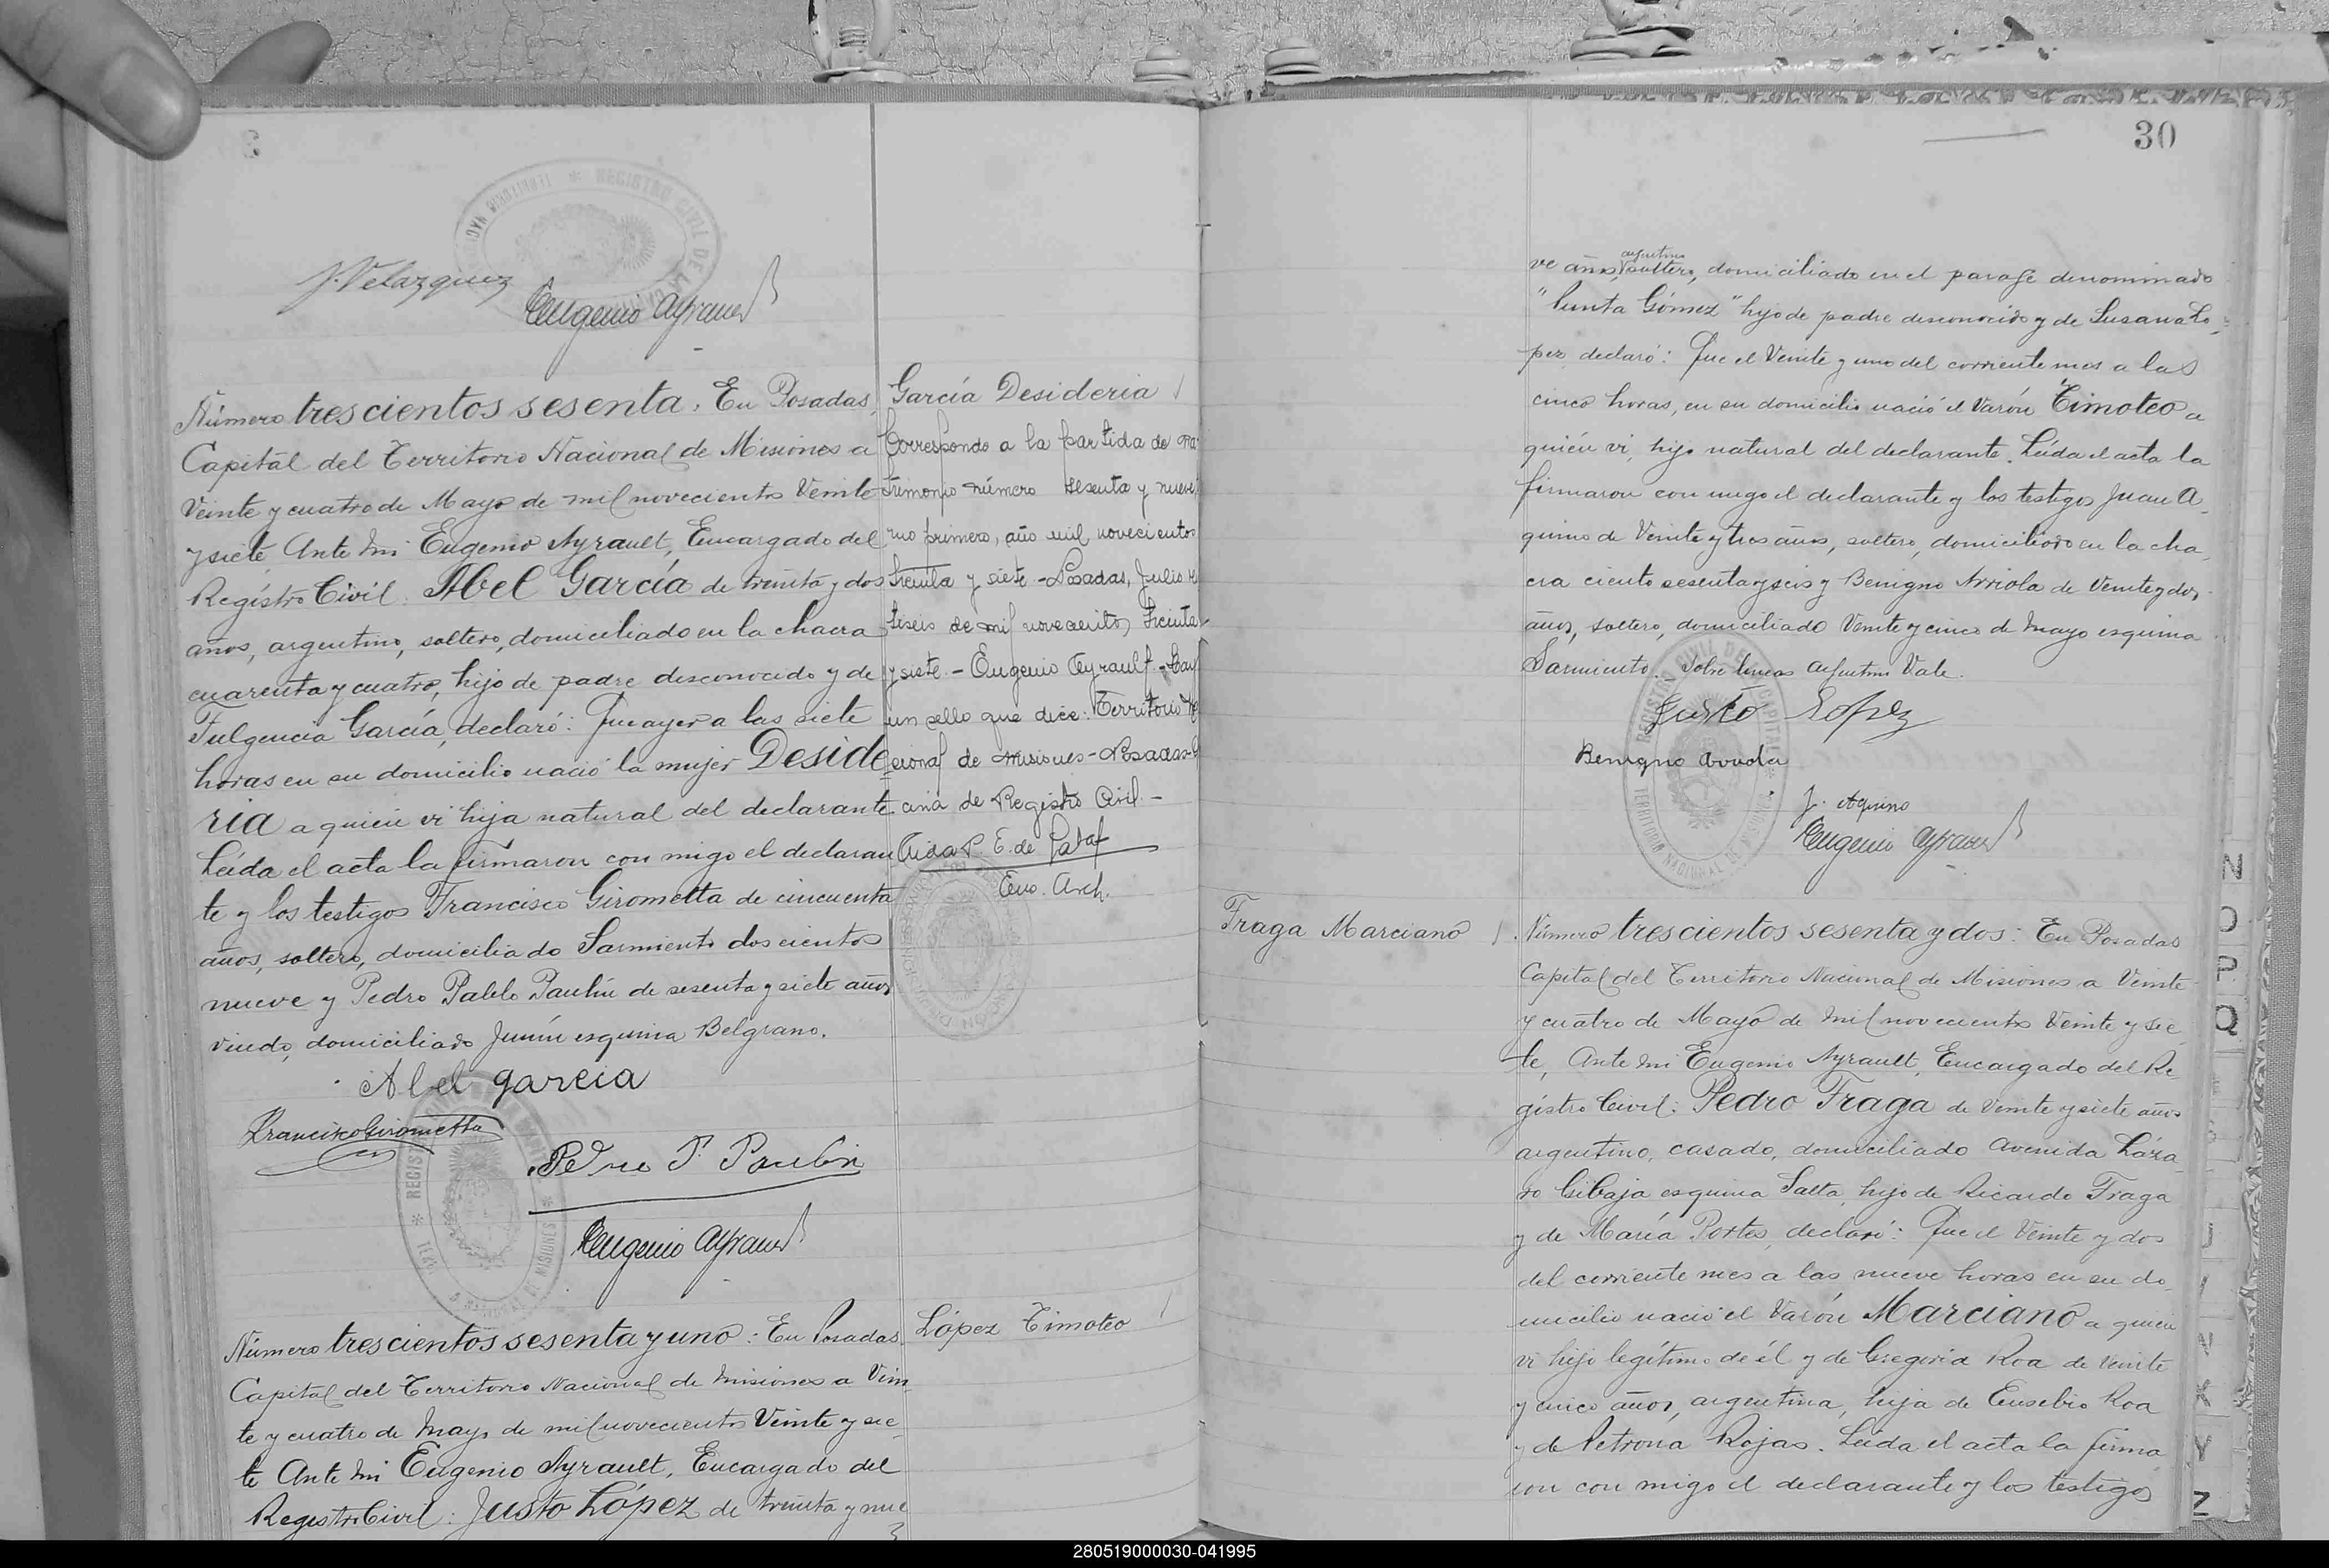 J. Velazquez
Eugenio Ayrault
Número trescientos sesenta: En Posadas,
Capital del Territorio Nacional de Misiones a
Veinte y cuatro de Mayo de mil novecientos Veinte
y siete, Ante mi Eugenio Ayrault, Encargado del
Registro Civil. Abel García de treinta y dos
años, argentino, soltero, domiciliado en la chacra
cuarenta y cuatro, hijo de padre desconocido y de
Fulgencia García, declaró: Que ayer a las siete
horas en su domicilio nació la mujer Deside
ria a quien vi hija natural del declarante
Leída el acta la firmaron con migo el declaran
te y los testigos Francisco Girometta de cincuenta
años, soltero, domiciliado Sarmiento doscientos
nueve y Pedro Pablo Paulin de sesenta y siete años
viudo, domiciliado Junín esquina Belgrano.
Abel garcia
Francisco Girometta
Pedro P. Paulin
Eugenio Ayrault
García Desideria
Corresponde a la partida de ma
trimonio número sesenta y nueve,
mo primero, año mil novecientos
treinta y siete - Posadas, Julio
tiseis de mil novecientos treinta
y siete. - Eugenio Ayrault - Hay
un sello que dice: Territorio Na
cional de Misiones - Posadas -
cina de Registro Civil. -
E. de
Enc. Arch.
Número trescientos sesenta y uno: En Posadas.
Capital del Territorio Nacional de Misiones a Vein
te y cuatro de Mayo de mil novecientos Veinte y sie
te Ante mi Eugenio Ayrault, Encargado del
Registro Civil: Justo López de treinta y nue
López Timoteo
30
ve años, argentino soltero, domiciliado en el paraje denominado
"Punta Gómez" hijo de padre desconocido y de Susana Lo
pez, declaró: Que el Veinte y uno del corriente mes a las
cinco horas, en su domicilio nació el Varón Timoteo a
quién vi, hijo natural del declarante. Leída el acta la
firmaron con migo el declarante y los testigos Juan A
quino de Veinte y tres años, soltero, domiciliado en la cha
cra ciento sesenta y seis y Benigno Arriola de Veinte y dos
años, soltero, domiciliado Veinte y cinco de Mayo esquina
Sarmiento. Sobre lineas argentino Vale.
Justo Lopez
Benigno
J. Aquino
Eugenio Ayrault
Fraga Marciano
Número trescientos sesenta y dos: En Posadas
Capital del Territorio Nacional de Misiones a Veinte
y cuatro de Mayo de mil novecientos Veinte y sie
te, Ante mi Eugenio Ayrault, Encargado del Re
gistro Civil: Pedro Fraga de Veinte y siete años
argentino, casado, domiciliado Avenida Láza
ro Gibaja esquina Salta, hijo de Ricardo Fraga
y de María Portes, declaró: Que el Veinte y dos
del corriente mes a las nueve horas en su do
micilio nació el Varón Marciano a quien
vi hijo legítimo de él y de Gregoria Roa de Veinte
y cinco años, argentina, hija de Eusebio Roa
y de Petrona Rojas. Leída el acta la firma
ron con migo el declarante y los testigos
N
O
P
Q
J
N
X
Y
Z
280519000030-041995